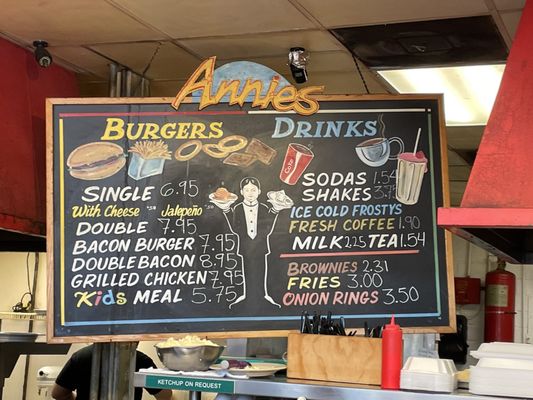 Annies
BURGERS
SINGLE 6.95
With Cheese Jalepeño
DOUBLE 7.95
BACON BURGER 7.95
DOUBLE BACON 8.95
GRILLED CHICKEN 7.95
Kids MEAL 5.75
DRINKS
SODAS 1.54
SHAKES
ICE COLD FROSTYS
FRESH COFFEE 1.90
MILK 2.25 TEA 1.54
BROWNIES 2.31
FRIES 3.00
ONION RINGS 3.50
KETCHUP ON REQUEST